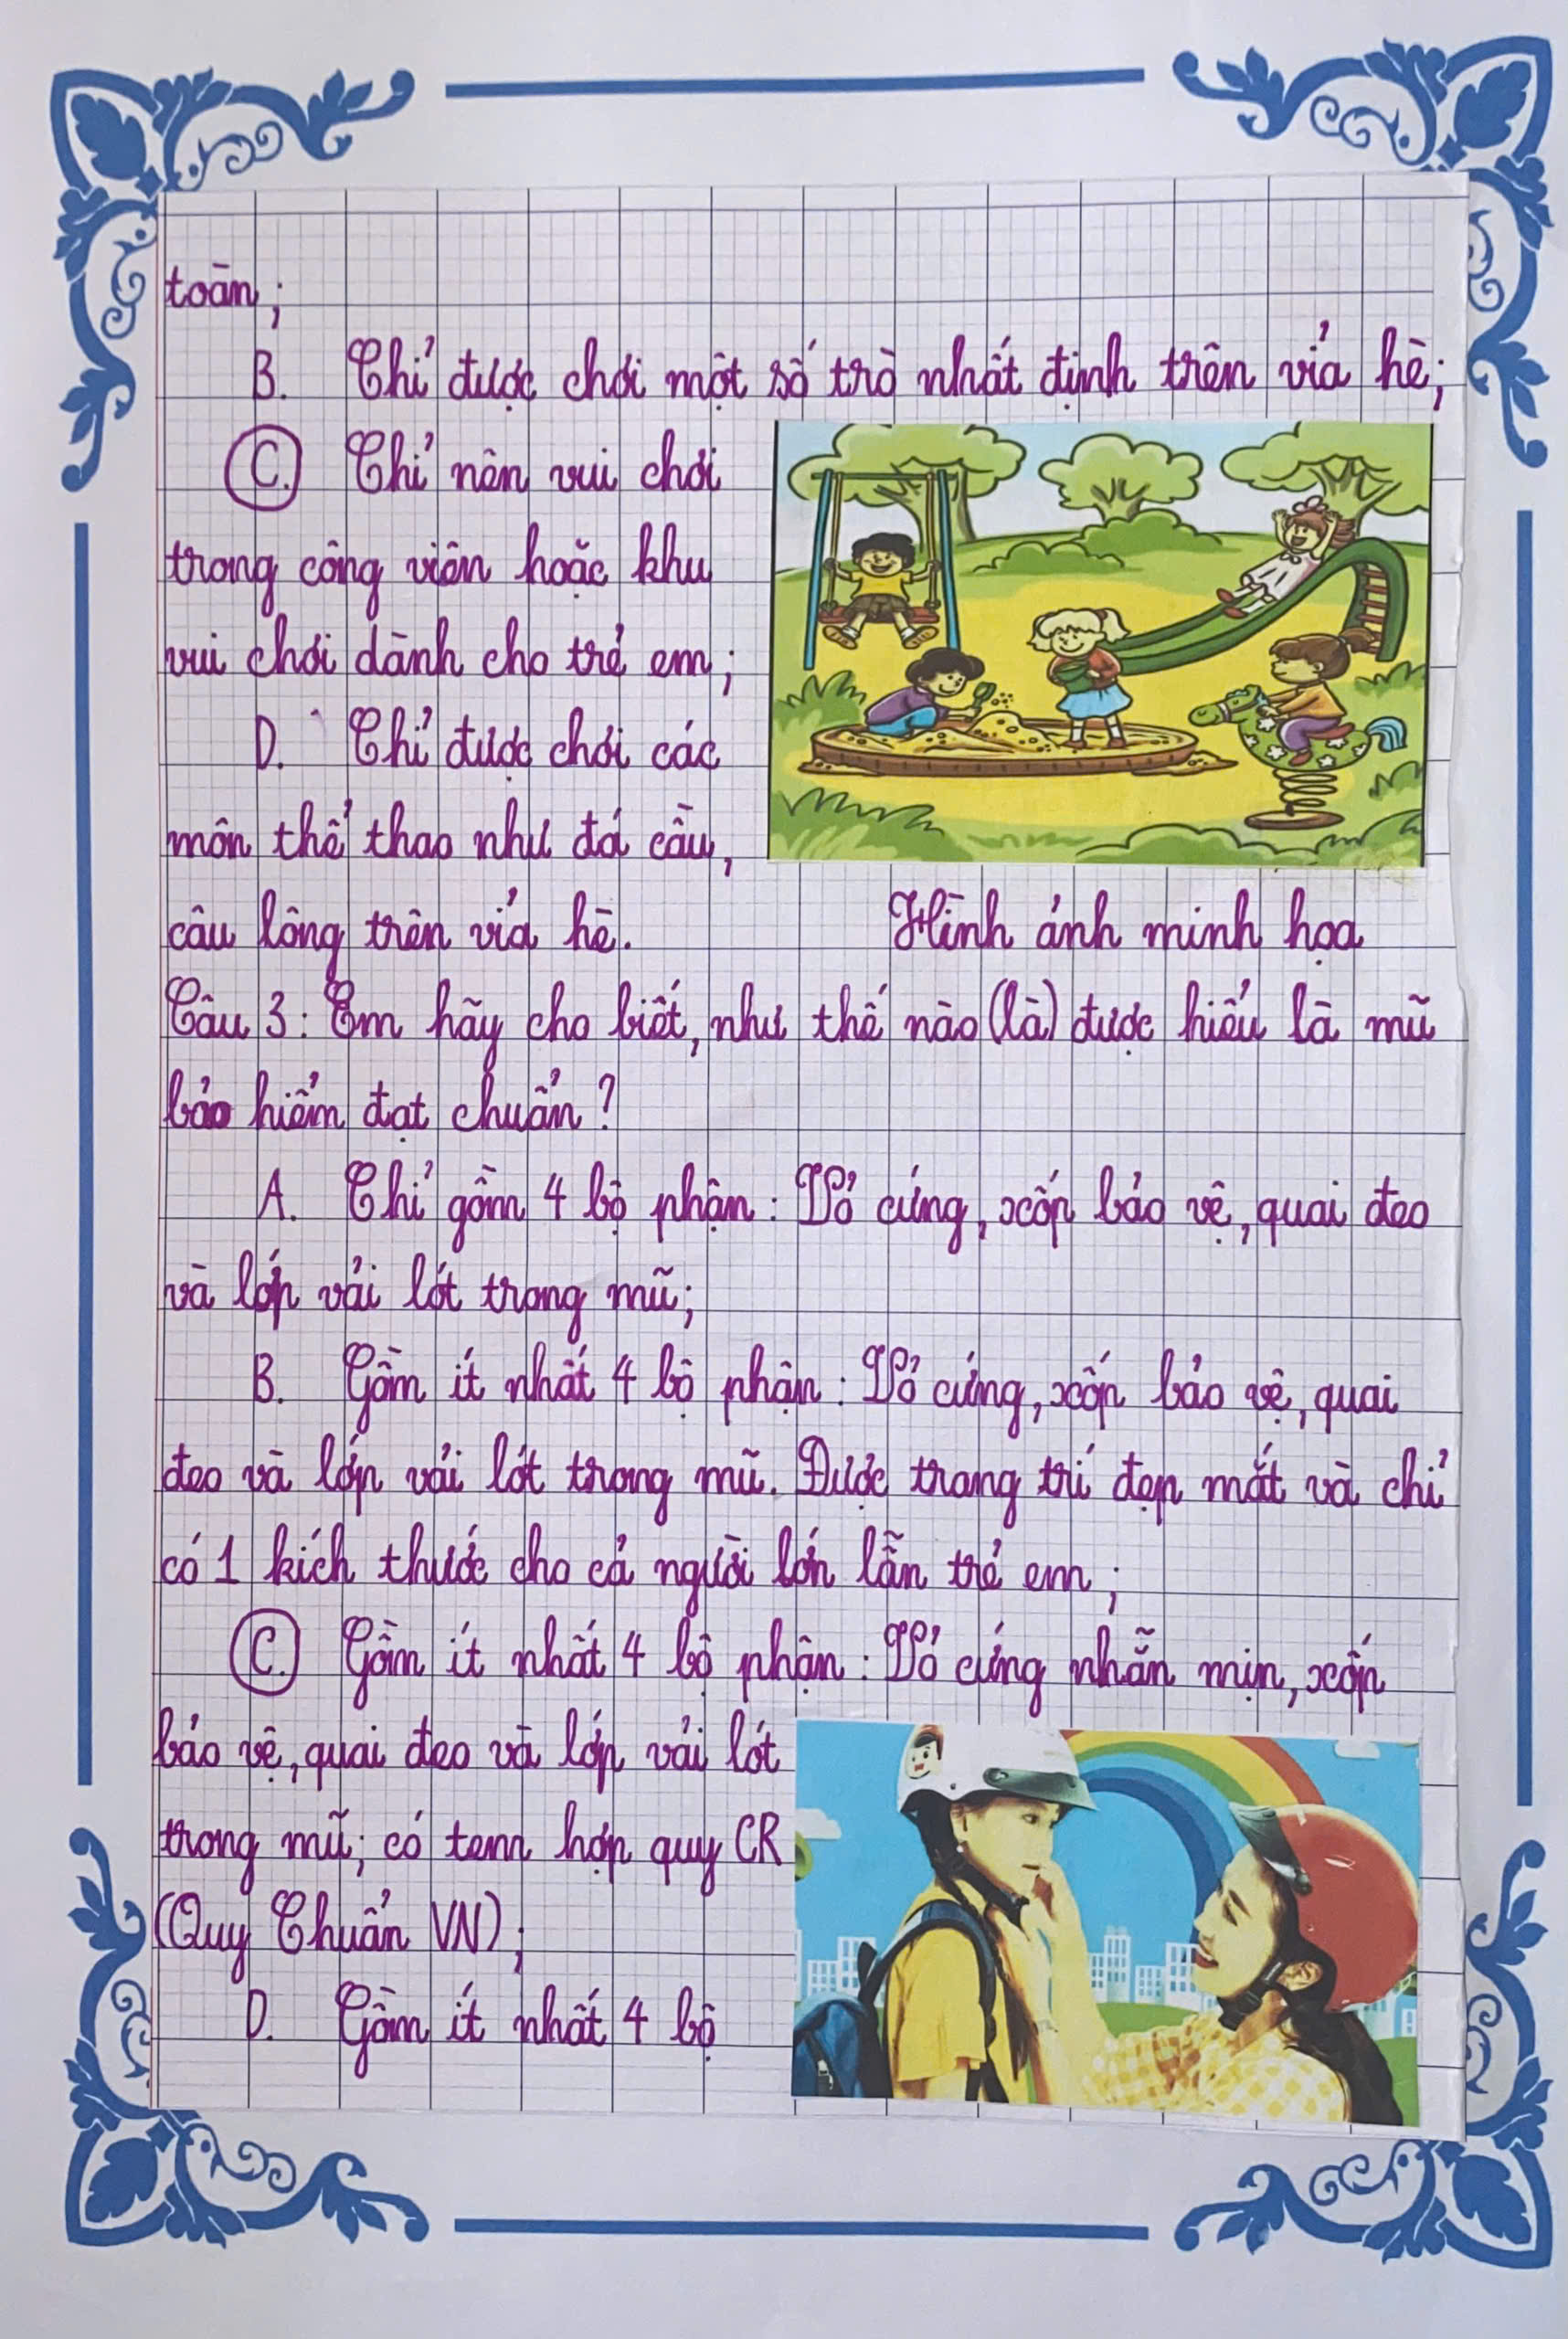 toàn;
B. Chỉ được chơi một số trò nhất định trên vỉa hè;
C. Chỉ nên vui chơi
trong công viên hoặc khu
vui chơi dành cho trẻ em;
D. Chỉ được chơi các
môn thể thao như đá cầu,
cầu lông trên vỉa hè.
Hình ảnh minh họa
Câu 3: Em hãy cho biết, như thế nào (là) được hiểu là mũ
bảo hiểm đạt chuẩn?
A. Chỉ gồm 4 bộ phận: Vỏ cứng, xốp bảo vệ, quai đeo
và lớp vải lót trong mũ;
B. Gồm ít nhất 4 bộ phận: Vỏ cứng, xốp bảo vệ, quai
đeo và lớp vải lót trong mũ. Được trang trí đẹp mắt và chỉ
có 1 kích thước cho cả người lớn lẫn trẻ em;
C. Gồm ít nhất 4 bộ phận: Vỏ cứng nhẵn mịn, xốp
bảo vệ, quai đeo và lớp vải lót
trong mũ; có tem hợp quy CR
(Quy Chuẩn VN);
D. Gồm ít nhất 4 bộ